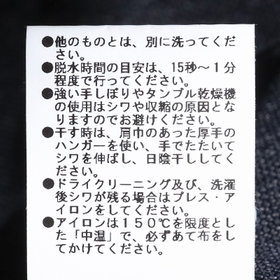 ●他のものとは、別に洗ってくだ
さい。
●脱水時間の目安は、15秒〜1分
程度で行ってください。
●強い手しぼりやタンブル乾燥機
の使用はシワや収縮の原因とな
りますのでお避けください。
●干す時は、肩巾のあった厚手の
ハンガーを使い、手でたたいて
シワを伸ばし、日陰干ししてく
ださい。
●ドライクリーニング及び、洗濯
後シワが残る場合はプレス・ア
イロンをしてください。
●アイロンは150℃を限度とし
た「中温」で、必ずあて布をし
てかけてください。